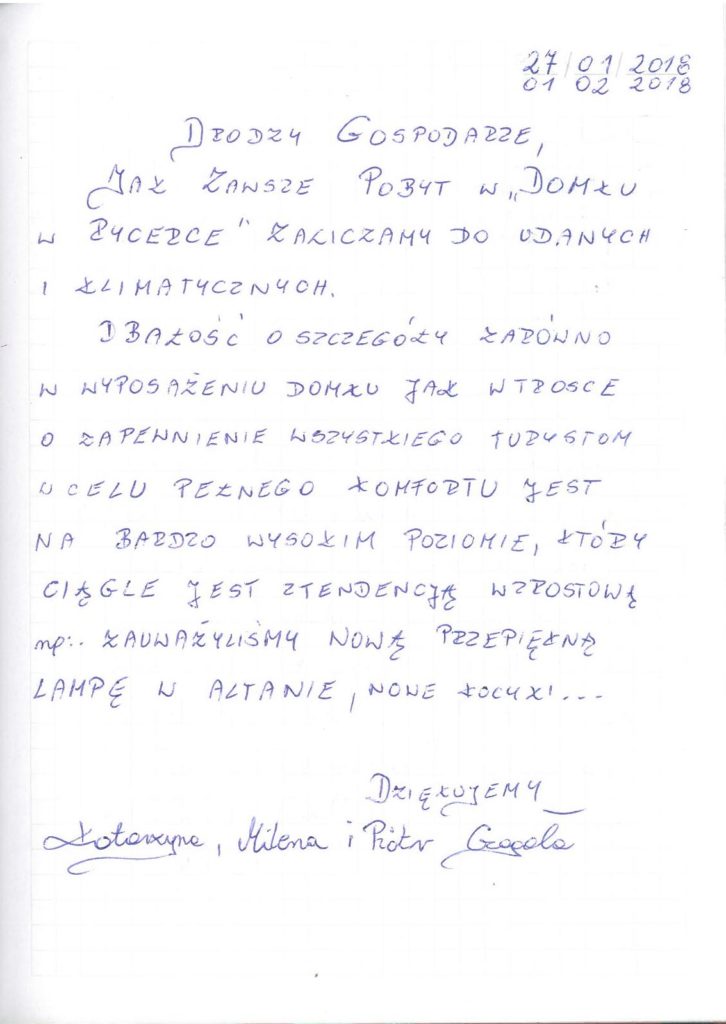 27/01/2018
01 02 2018
DRODZY GOSPODARZE,
JAK ZAWSZE POBYT W „DOMKU
W RYCERCE" ZALICZAMY DO UDANYCH
I KLIMATYCZNYCH.
DBAŁOŚĆ O SZCZEGÓŁY ZARÓWNO
W WYPOSAŻENIU DOMKU JAK W TROSCE
O ZAPEWNIENIE WSZYSTKIEGO TURYSTOM
W CELU PEŁNEGO KOMFORTU JEST
NA BARDZO WYSOKIM POZIOMIE, KTÓRY
CIĄGLE JEST Z TENDENCJĄ WZROSTOWĄ
np:. ZAUWAŻYLIŚMY NOWĄ PRZEPIĘKNĄ
LAMPĘ W ALTANIE, NOWE KOCYKI...
DZIĘKUJEMY
Katarzyna, Milena i Piotr